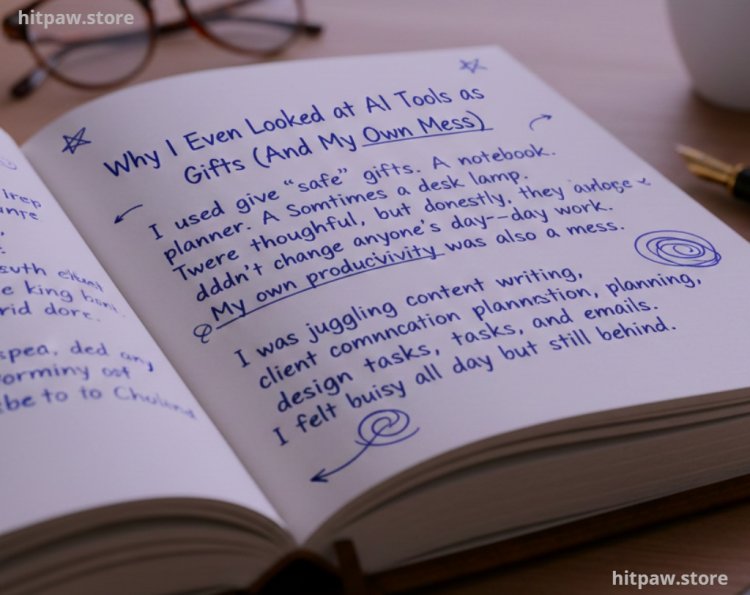 hitpaw.store
irep
suth
e king
rid dore.
spea, ded any
orminy ost
be to to
Why I Even Looked at AI Tools as
Gifts (And My Own Mess)
I used give “safe” gifts. A notebook.
planner. A Somtimes a desk lamp.
Twere thoughful, but donestly, they
dddn't change anyone's day--day work.
My own producivivity was also a mess.
I was juggling content writing,
client comnncation plannrstion, planning,
design tasks, tasks, and emails.
I felt buisy all day but still behind.
hitpaw.store